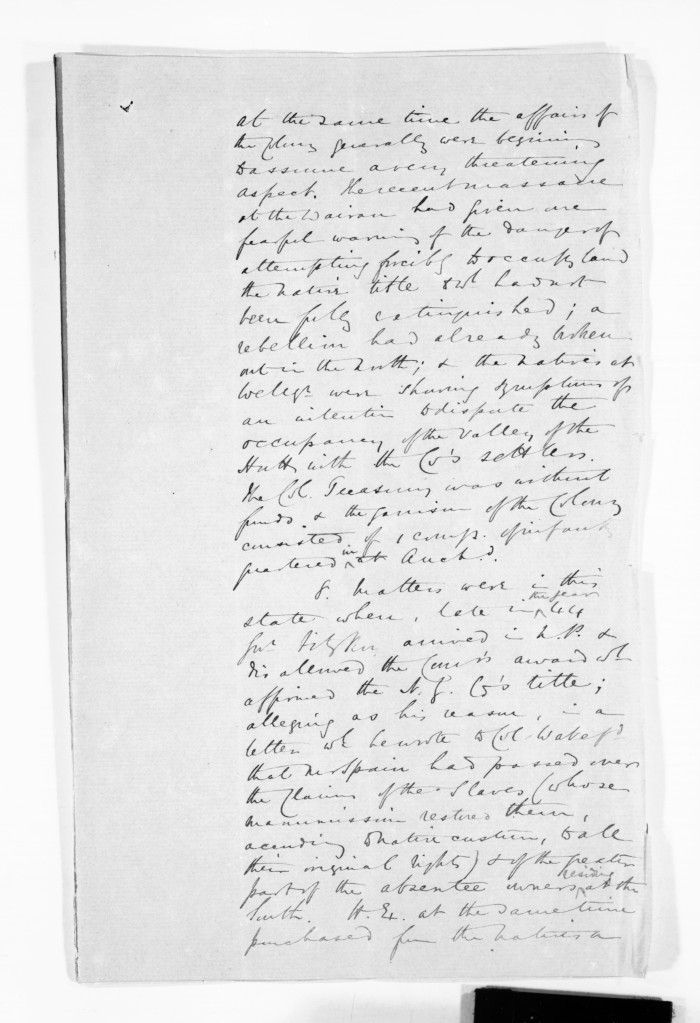 at the same time the affairs of
the Colony generally were beginning
to assume a very threatening
aspect. The recent massacre
at the Wairau had given one
fearful warning of the danger of
attempting forcibly to occupy land
the native title to wh had not
been fully extinguished; a
rebellion had already broken
out in the North; & the natives at
Wellgn were showing symptoms of
an intention to dispute the
occupancy of the Valley of the
Hutt with the Co's settlers.
The Col. Treasury was without
funds & the garrison of the Colony
consisted of 1 comp. of infantry
quartered in at Auckd.
8. Matters were in this
state when, late in the year 44
Govr FitzRoy arrived in N.P. &
disallowed the Comr's award wh
affirmed the N.Z. Co's title;
alleging as his reason, in a
letter wh he wrote to Col. Wakefd
that Mr Spain had passed over
the claims of the Slaves (whose
manumission restored them,
according to native custom, to all
their original rights) & of the greater
part of the absentee owners residing at the
South. H.E. at the same time
purchased from the natives a